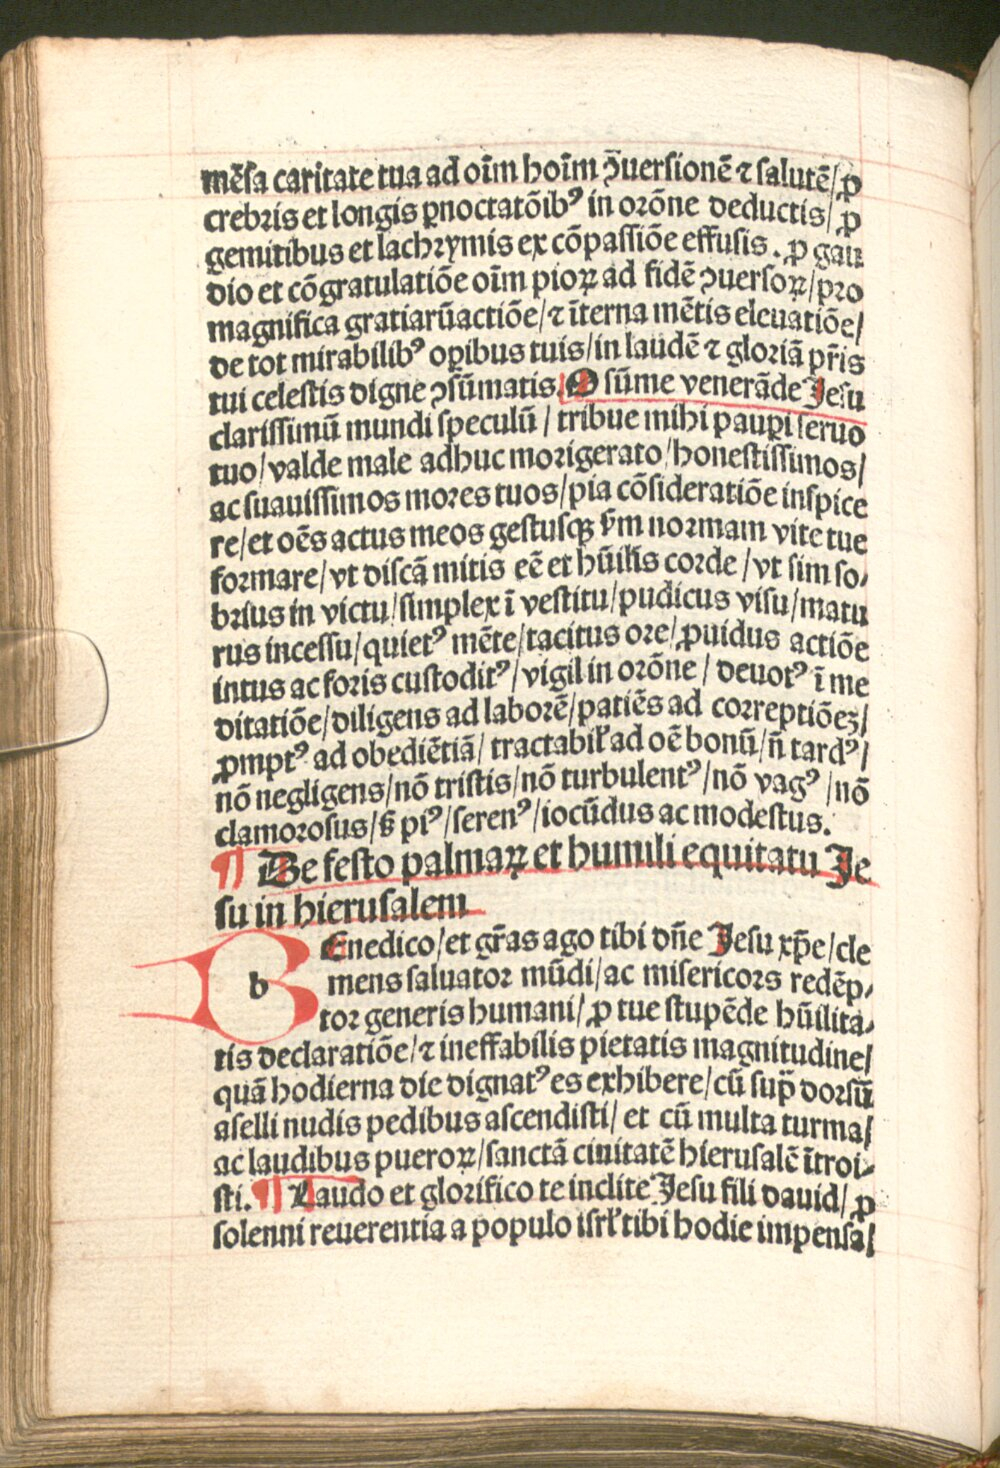 mēſa caritate tua ad oīm hoīm ꝯuerſionē ⁊ ſalutē/ ꝓ
crebris et longis ꝑnoctatōibꝰ in orōne deductis/ ꝓ
gemitibus et lachrymis ex cōpaſſiōe effuſis. ꝓ gau
dio et cōgratulatiōe oīm pioꝝ ad fidē ꝯuerſoꝝ/ pro
magnifica gratiarūactiōe/ ⁊ īterna mētis eleuatiōe/
de tot mirabilibꝰ oꝑibus tuis/ in laudē ⁊ gloriā pr̄is
tui celeſtis digne ꝯſūmatis. O ſūme venerāde Jeſu
clariſſimū mundi ſpeculū / tribue mihi pauꝑi ſeruo
tuo/ valde male adhuc morigerato/ honeſtiſſimos/
ac ſuauiſſimos mores tuos/ pia cōſideratiōe inſpice
re/ et oēs actus meos geſtuſqꝫ ẜm normam vite tue
formare/ vt diſcā mitis eē et hūil'is corde / vt ſim ſo/
brius in victu/ ſimplex ī veſtitu/ pudicus viſu/ matu
rus inceſſu/ quietꝰ mēte/ tacitus ore/ ꝓuidus actiōe
intus ac foris cuſtoditꝰ/ vigil in orōne / deuotꝰ ī me
ditatiōe/ diligens ad laborē/ patiēs ad correptiōeꝫ/
ꝓmptꝰ ad obediētiā/ tractabil' ad oē bonū/ ñ tardꝰ/
nō negligens/ nō triſtis/ nō turbulentꝰ/ nō vagꝰ /nō
clamoroſus/ ẜ piꝰ/ ſerenꝰ/ iocūdus ac modeſtus.
¶ De feſto palmaꝝ et humili equitatu Je
ſu in hieruſalem
bEnedico/ et gr̄as ago tibi dn̄e Jeſu xp̄e/ cle
mens ſaluator mūdi/ ac miſericors redēp/
tor generis humani/ ꝓ tue ſtupēde hūilita/
tis declaratiōe/ ⁊ ineffabilis pietatis magnitudine/
quā hodierna die dignatꝰ es exhibere/ cū ſup̄ dorſū
aſelli nudis pedibus aſcendiſti/ et cū multa turma/
ac laudibus pueroꝝ/ ſanctā ciuitatē hieruſalē ītroi/
ſti. ¶ Laudo et glorifico te inclite Jeſu fili dauid/ ꝓ
ſolenni reuerentia a populo iſrl' tibi hodie impenſa/